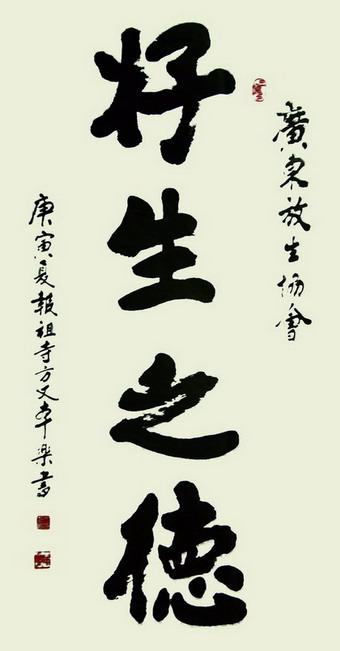 廣東放生協會
好生之德
庚寅夏報祖寺方丈本樂書